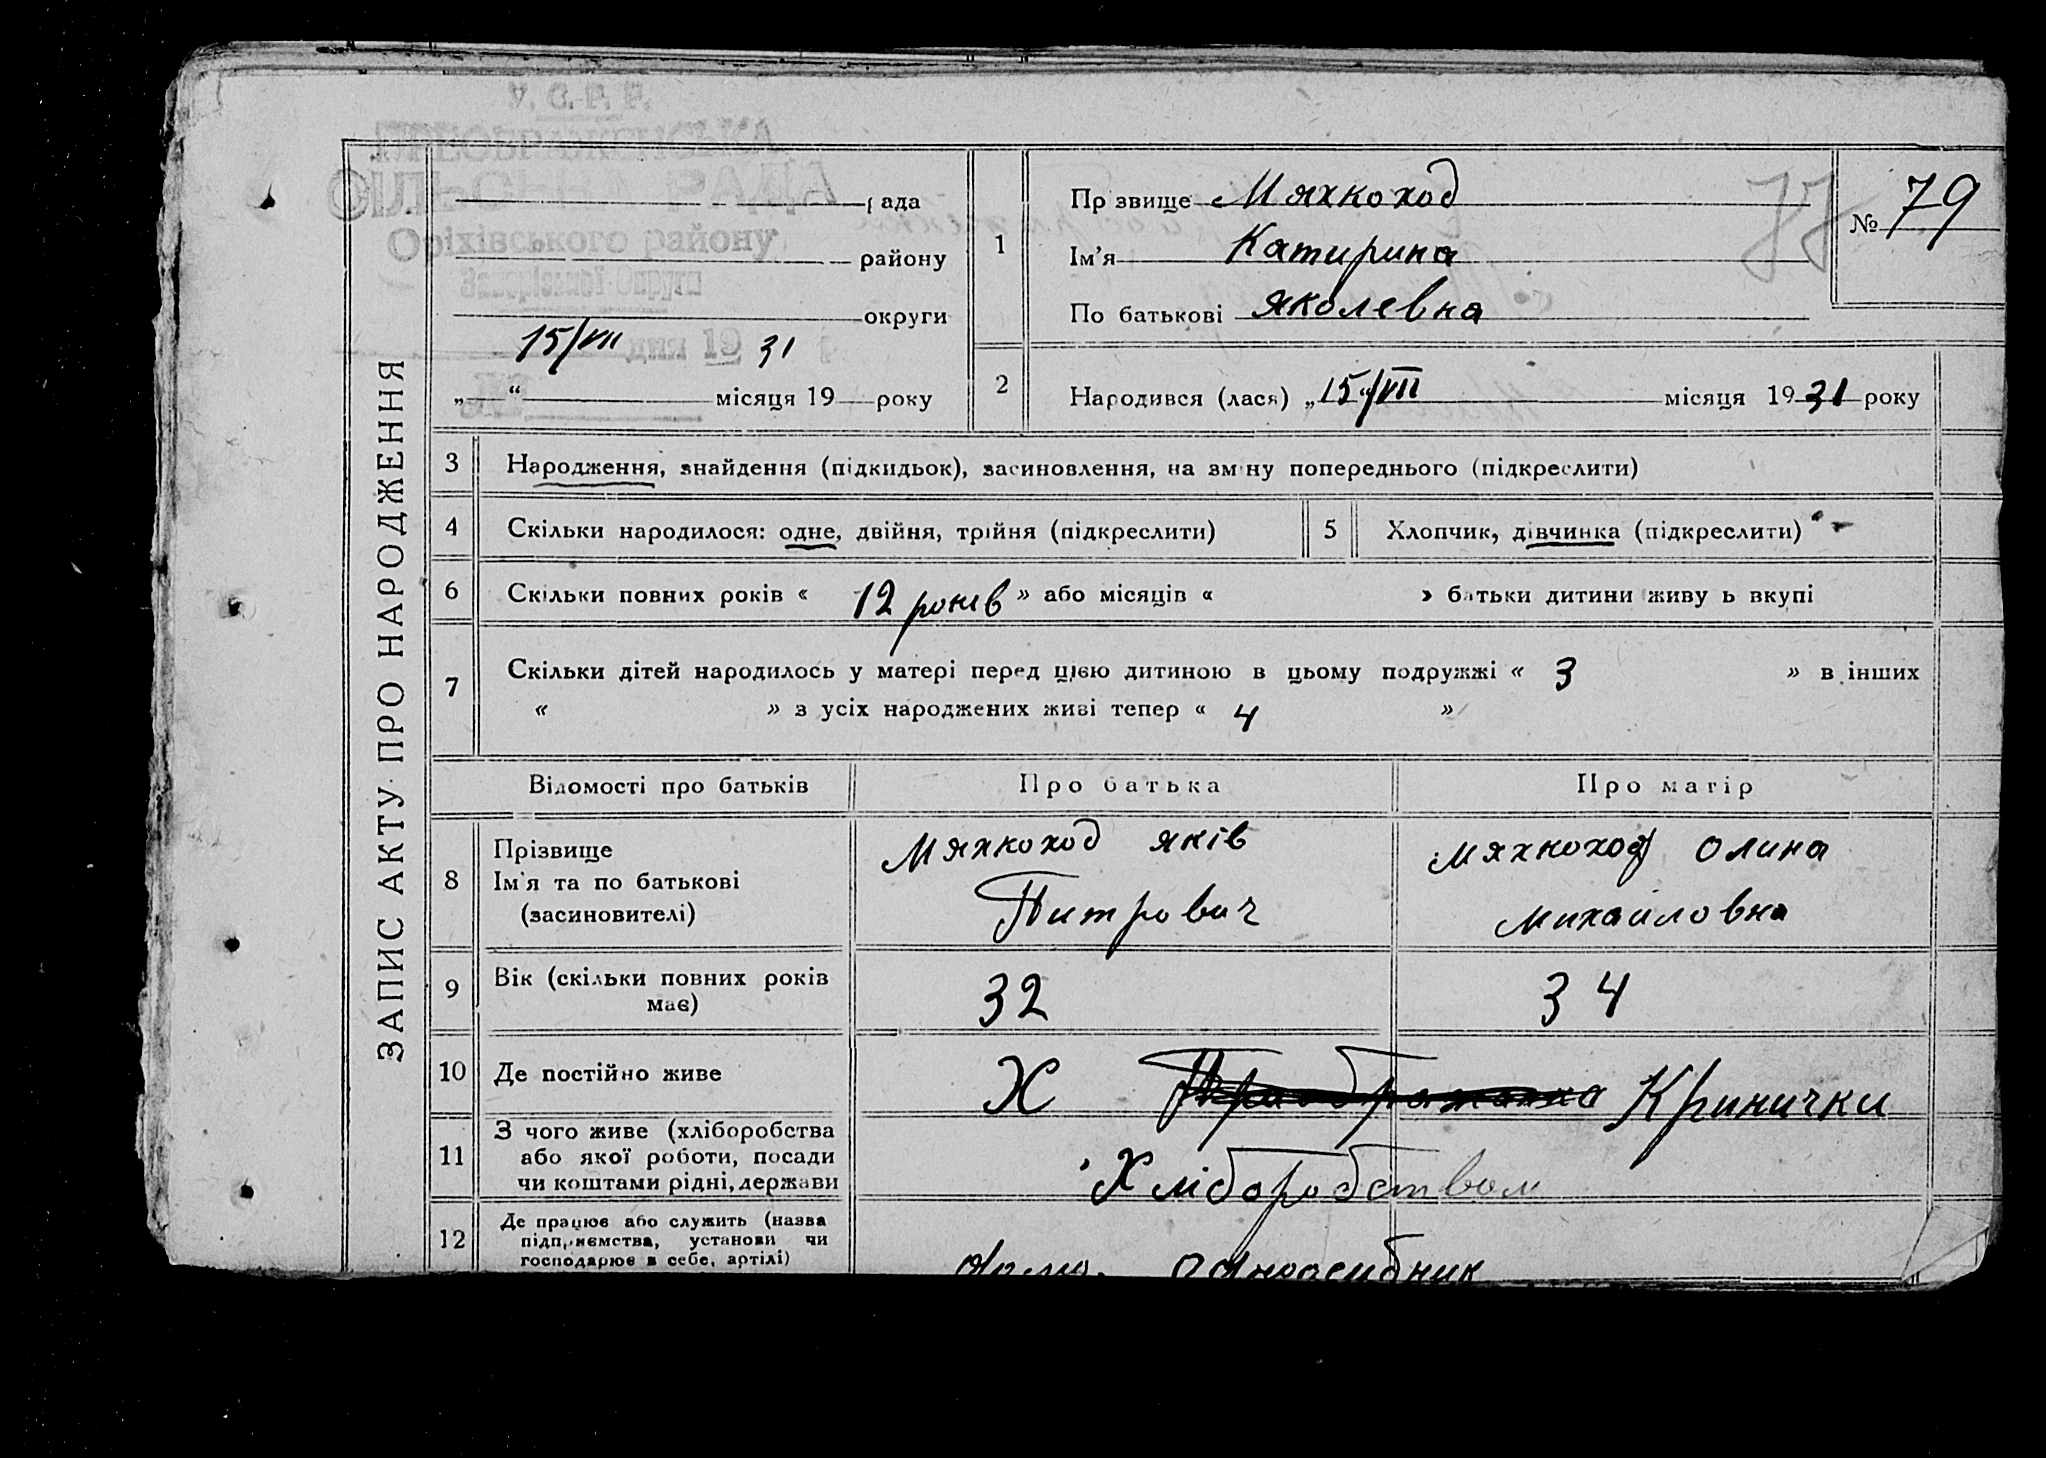 У. С. Р. Р.
ПРЕОБРАЖЕНСЬКА
СІЛЬСЬКА РАДА
рада
Оріхівського району
району
Запорізької Округи
округи
15/VII дня 19 31 р.
№
„ “ місяця 19 року
ЗАПИС АКТУ ПРО НАРОДЖЕННЯ
1
Прізвище Мяхкоход
Ім'я Катирина
По батькові Яколевна
77
№ 79
2
Народився (лася) „15“/VII місяця 1931 року
3 Народження, знайдення (підкидьок), засиновлення, на зміну попереднього (підкреслити)
4 Скільки народилося: одне, двійня, трійня (підкреслити)
5 Хлопчик, дівчинка (підкреслити)
6 Скільки повних років « 12 років » або місяців « » батьки дитини живуть вкупі
7 Скільки дітей народилось у матері перед цією дитиною в цьому подружжі « 3 » в інших
« » з усіх народжених живі тепер « 4 »
Відомості про батьків Про батька Про матір
8
Прізвище
Ім'я та по батькові
(засиновителі)
Мяхкоход Яків
Питрович
Мяхкоход Олина
Михаиловна
9
Вік (скільки повних років
має)
32
34
10 Де постійно живе
Х Кринички
11
З чого живе (хліборобства
або якої роботи, посади
чи коштами рідні, держави
Хліборобством
12
Де працює або служить (назва
підприємства, установи чи
господарює в себе, артілі)
одноосибник